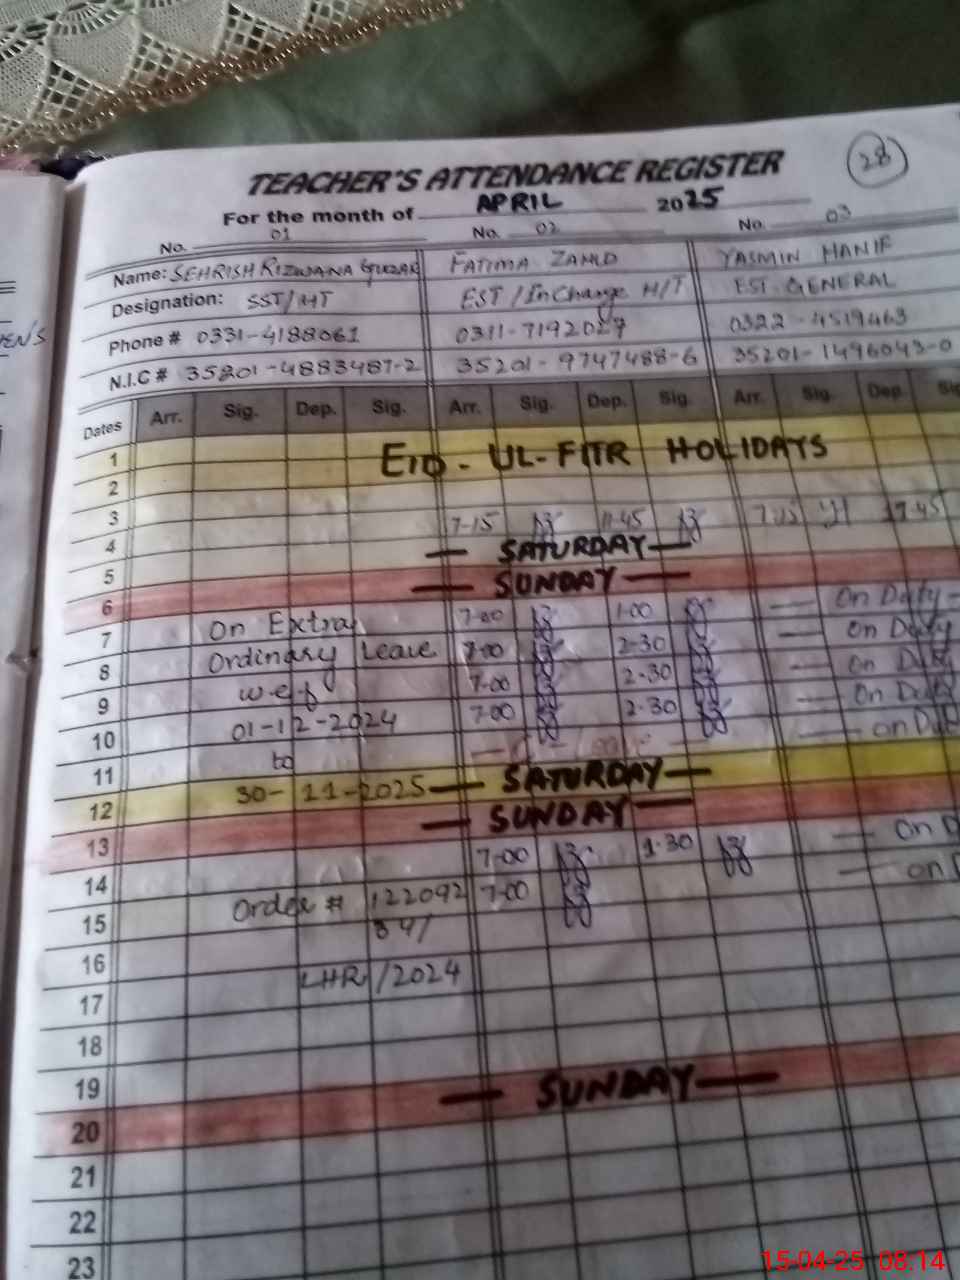 TEACHER'S ATTENDANCE REGISTER
28
For the month of APRIL 2025
No. 01 No. 02 No. 03
Name: SEHRISH RIZWANA FATIMA YASMIN HANIF
Designation: SST/HT EST/InCharge H/T EST. GENERAL
Phone # 0331-4188061 0311-7192027 0322-4519463
N.I.C # 35201-4883487-2 35201-9747488-6 35201-1496043-0
Dates Arr. Sig. Dep. Sig. Arr. Sig. Dep. Sig. Arr. Sig. Dep. Sig
1 EID-UL-FITR HOLIDAYS
2
3 7-15 11-45 7-15
4 — SATURDAY —
5 — SUNDAY —
6 7-00 1-00 — On Duty -
7 On Extra 7-00 2-30 — On Duty
8 Ordinary Leave 7-00 2-30 — On Duty
9 w-e-f 7-00 2-30 — On Duty
10 01-12-2024 — Leave — — on Duty
11 to — SATURDAY —
12 30-11-2025 — SUNDAY —
13 7-00 1-30 — On D
14 Order # 122092 7-00 — on D
15 84/
16 LHR/2024
17
18
19 — SUNDAY —
20
21
22
23
EN'S
15-04-25 08:14